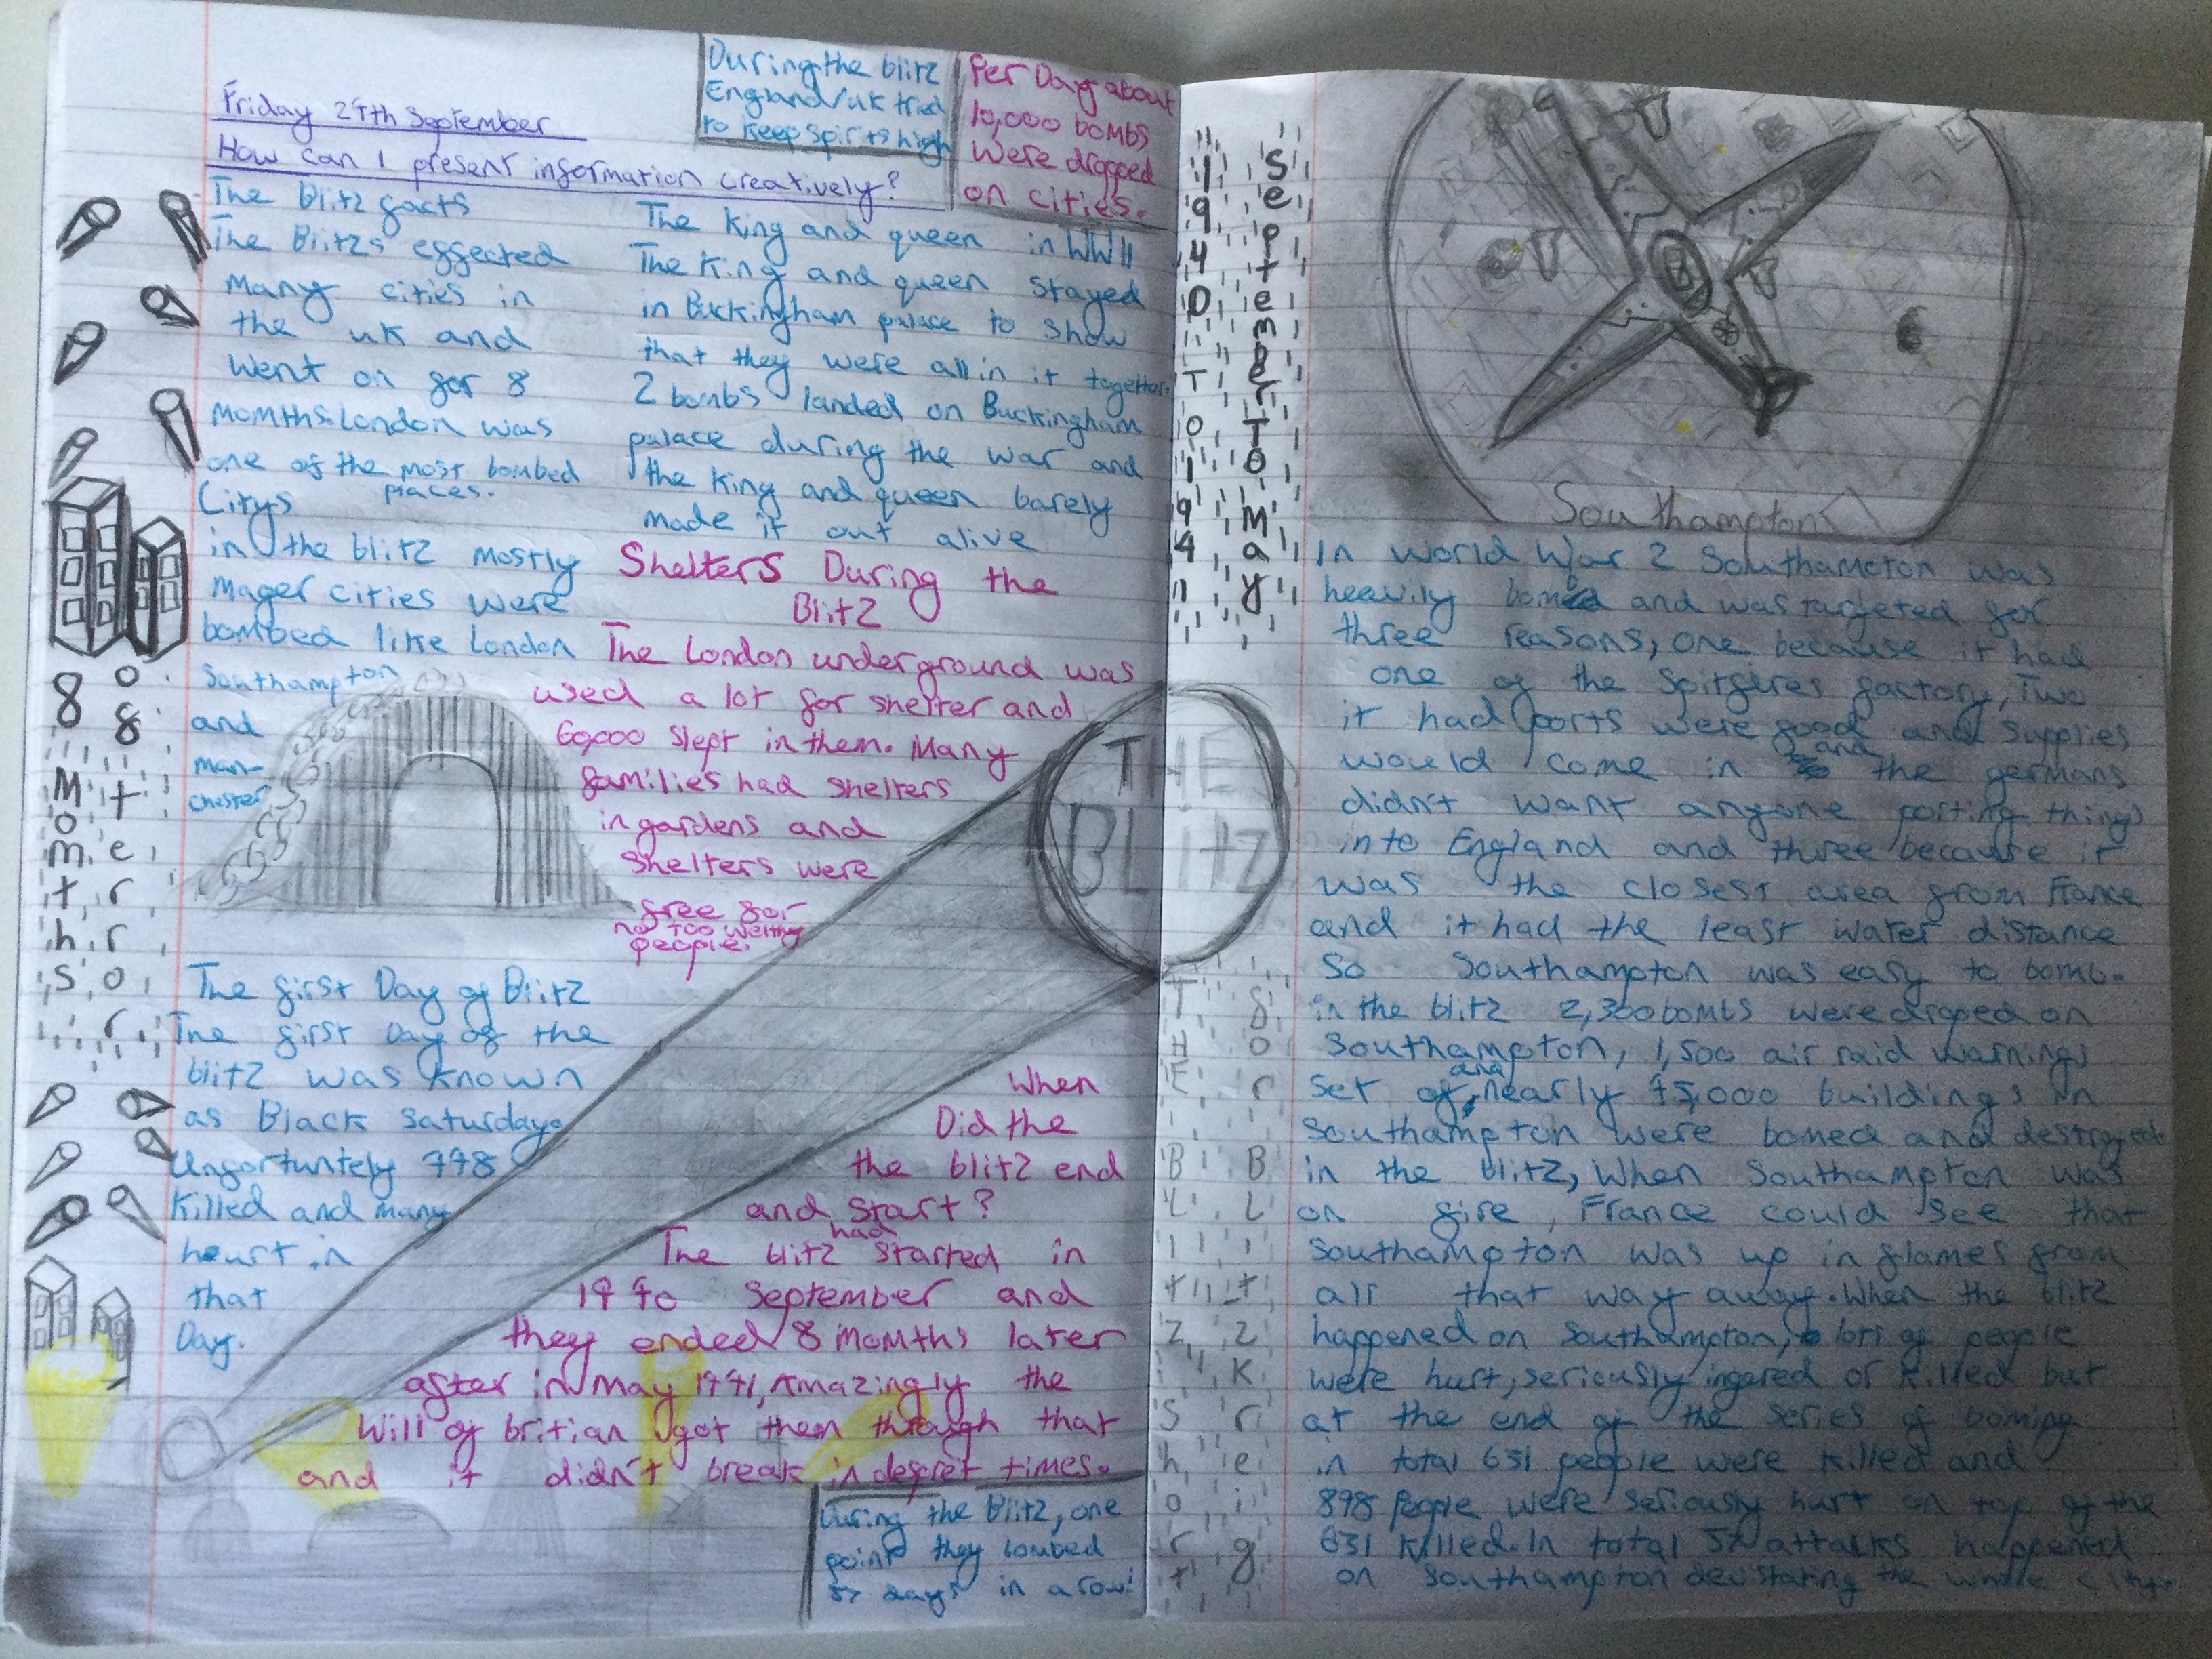 Friday 29th September
How can I present information creatively?
During the blitz
England/uk tried
to keep spirits high
Per Day about
10,000 bombs
were dropped
on cities.
The Blitz facts
The Blitzs effected
Many cities in
the uk and
went on for 8
momths.London was
one of the most bombed
places.
Citys
in the blitz mostly
mager cities were
bombed like London
Southampton
and
man-
chester
The first Day of Blitz
The first Day of the
blitz was known
as Black saturday.
Unfortuntely 448
killed and many
heurt in
that
Day.
The King and queen in WWII
The King and queen stayed
in Buckingham palace to show
that they were all in it together.
2 bombs landed on Buckingham
palace during the war and
the King and queen barely
made it out alive
Shelters During the
Blitz
The London underground was
used a lot for shelter and
60,000 slept in them. Many
families had shelters
in gardens and
shelters were
free for
not too welthy
people.
When
Did the
the blitz end
and start?
The blitz had started in
1940 September and
they ended 8 momths later
after in may 1941, Amazingly the
Will of britian got them through that
and it didn't break in despret times.
During the Blitz, one
point they bombed
57 days in a row!
8 Momths
or 8 terror
THE
BLITZ
1940 To 1941
September To May
THE Blitz short
for BLitzKrieg
Southampton
In World War 2 Southampton was
heavily bomed and was targeted for
three reasons, one because it had
one of the Spitfires factory, Two
it had ports were good and supplies
would come in and the germans
didn't want anyone porting things
into England and three because it
was the closest area from France
and it had the least water distance
So Southampton was easy to bomb.
in the blitz 2,300 bombs were droped on
Southampton, 1,500 air raid warnings
set of, and nearly 45,000 buildings in
Southampton were bomed and destroyed
in the blitz, When Southampton was
on fire, France could see that
Southampton was up in flames from
all that way away. When the blitz
happened on Southampton, lots of people
were hurt, seriously ingered or killed but
at the end of the series of boming
in total 631 people were killed and
898 people were seriously hurt on top of the
631 killed. In total 57 attacks happened
on Southampton devistating the whole city.